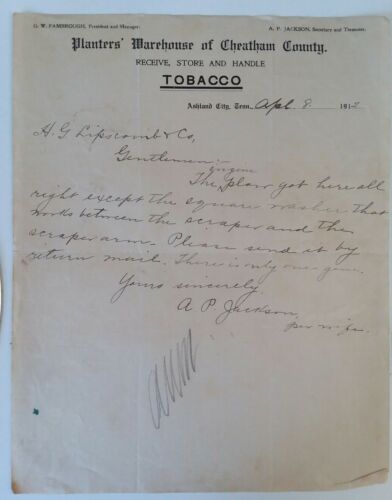 G. W. PAMBROUGH, President and Manager.
A. P. JACKSON, Secretary and Treasurer.
Planters' Warehouse of Cheatham County.
RECEIVE, STORE AND HANDLE
TOBACCO
Ashland City, Tenn., Apl 8 1912
H. G Lipscomb & Co,
Gentlemen:-
The plow got here all
right except the square washer that
works between the scraper and the
scraper arm. Please send it by
return mail. There is only one gone.
Yours sincerely,
A P. Jackson,
per wife.